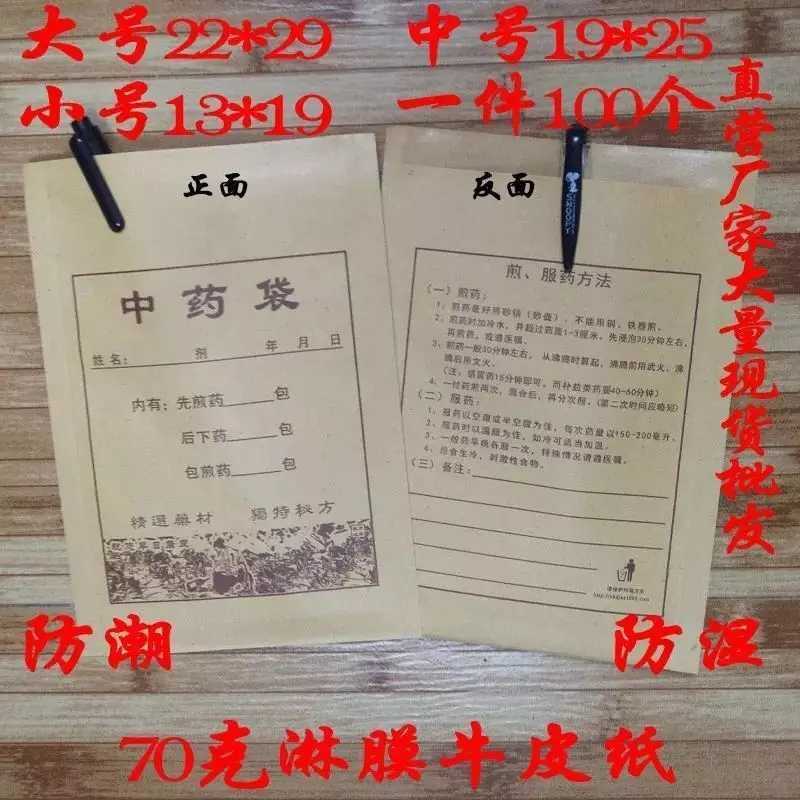 大号22*29 中号19*25
小号13*19 一件100个
直营厂家大量现货批发
正面
中药袋
姓名: 剂 年 月 日
内有:先煎药_____包
后下药_____包
包煎药_____包
精選藥材 獨特秘方
反面
SNOOPY
煎、服药方法
(一)煎药:
1、煎药最好用砂锅(砂壶)、不能用铜、铁器煎。
2、煎药时加冷水,并超过药面1-3厘米,先浸泡30分钟左右,
再煎药,或遵医嘱。
3、煎药一般30分钟左右,从沸腾时算起,沸腾前用武火、沸
腾后用文火。
(注:感冒药15分钟即可,而补益类药要40-60分钟)
4、一付药煎两次,混合后,再分次剂。(第二次时间应略短)
(二)服药:
1、服药以空腹或半空腹为佳,每次药量以150-200毫升。
2、服药时以温服为佳,如冷可适当加温。
3、一般药早晚各服一次,特殊情况请遵医嘱。
4、忌食生冷、刺激性食物。
(三)备注:
防潮 防湿
70克淋膜牛皮纸